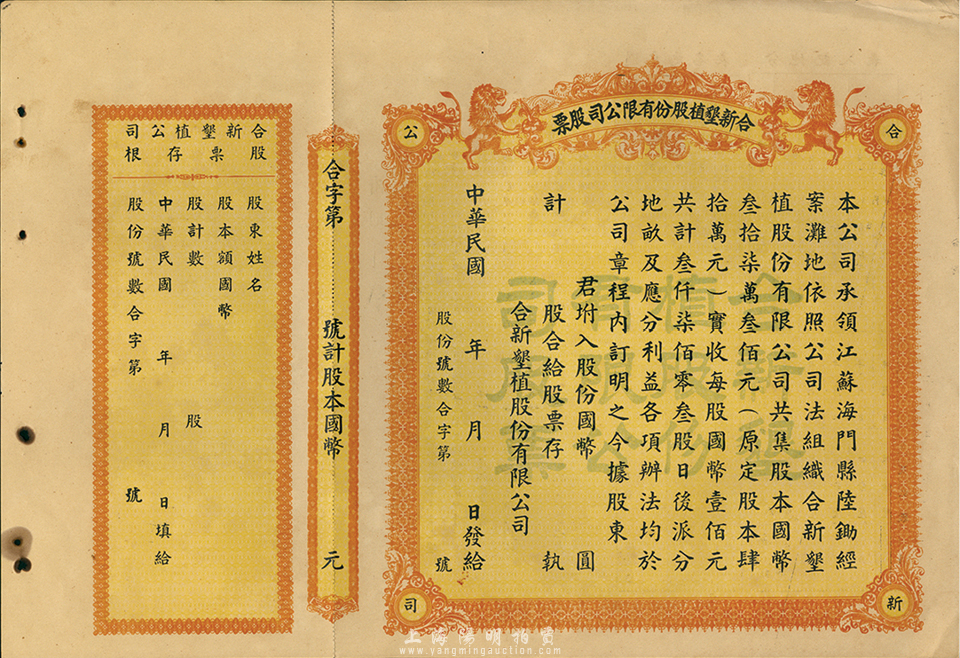 合新墾植股份有限公司股票
合
新
公
司
本公司承領江蘇海門縣陸鋤經
案灘地依照公司法組織合新墾
植股份有限公司共集股本國幣
叁拾柒萬叁佰元（原定股本肆
拾萬元）實收每股國幣壹佰元
共計叁仟柒佰零叁股日後派分
地畝及應分利益各項辦法均於
公司章程內訂明之今據股東
君坿入股份國幣 圓
計 股合給股票存 執
合新墾植股份有限公司
中華民國 年 月 日發給
股份號數合字第 號
合新墾植股份有限公司股票
合字第 號計股本國幣 元
合新墾植公司
股票存根
股東姓名
股本額國幣
股計數 股
中華民國 年 月 日填給
股份號數合字第 號
上海陽明拍賣
www.yangmingauction.com